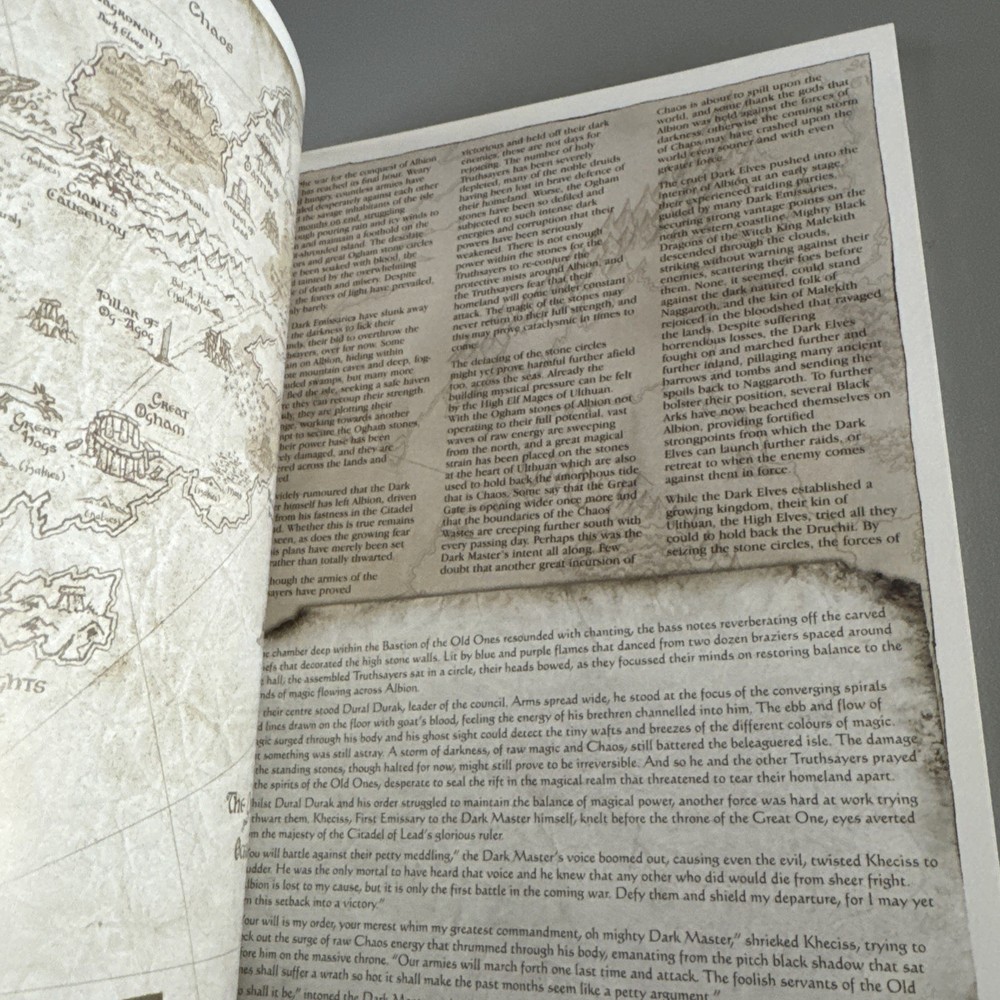 Chaos
Dark Elves
Giants
Causeway
Pillar of
Og-Agog
Great
Ogham
Great
Hogs
war for the conquest of Albion
reached its final hour. Weary
countless armies have
desperately against each other
the savage highlands of the isle
months on end, struggling
pouring rain and icy winds to
and maintain a foothold on the
island. The desolate
and great Ogham stone circles
been soaked with blood, the
tainted by the overwhelming
of death and misery. Despite
the forces of light have prevailed,
barely.
Dark Emissaries have slunk away
the darkness to lick their
their bid to overthrow the
over for now. Some
on Albion, hiding within
mountain caves and deep, fog-
swamps, but many more
fled the isle, seeking a safe haven
they can recoup their strength.
they are plotting their
working towards another
to secure the Ogham stones.
power base has been
damaged, and they are
across the lands and
widely rumoured that the Dark
himself has left Albion, driven
from his fastness in the Citadel
Whether this is true remains
seen, as does the growing fear
plans have merely been set
rather than totally thwarted.
though the armies of the
have proved
victorious and held off their dark
enemies, these are not days for
rejoicing. The number of holy
Truthsayers has been severely
depleted, many of the noble druids
having been lost in brave defence of
their homeland. Worse, the Ogham
stones have been so defiled and
subjected to such intense dark
energies and corruption that their
powers have been seriously
weakened. There is not enough
power within the stones for the
Truthsayers to re-conjure the
protective mists around Albion, and
the Truthsayers fear that their
homeland will come under constant
attack. The magic of the stones may
never return to their full strength, and
this may prove cataclysmic in times to
come.
The defacing of the stone circles
might yet prove harmful further afield
too, across the seas. Already the
building mystical pressure can be felt
by the High Elf Mages of Ulthuan.
With the Ogham stones of Albion not
operating to their full potential, vast
waves of raw energy are sweeping
from the north, and a great magical
strain has been placed on the stones
at the heart of Ulthuan which are also
used to hold back the amorphous tide
that is Chaos. Some say that the Great
Gate is opening wider once more and
that the boundaries of the Chaos
Wastes are creeping further south with
every passing day. Perhaps this was the
Dark Master's intent all along. Few
doubt that another great incursion of
Chaos is about to spill upon the
world, and some thank the gods that
Albion was held against the forces of
darkness, otherwise the coming storm
of Chaos may have crashed upon the
world even sooner and with even
greater force.
The cruel Dark Elves pushed into the
interior of Albion at an early stage,
their experienced raiding parties,
guided by many Dark Emissaries,
securing strong vantage points on the
north western coastline. Mighty Black
Dragons of the Witch King Malekith
descended through the clouds,
striking without warning against their
enemies, scattering their foes before
them. None, it seemed, could stand
against the dark natured folk of
Naggaroth, and the kin of Malekith
rejoiced in the bloodshed that ravaged
the lands. Despite suffering
horrendous losses, the Dark Elves
fought on and marched further and
further inland, pillaging many ancient
barrows and tombs and sending the
spoils back to Naggaroth. To further
bolster their position, several Black
Arks have now beached themselves on
Albion, providing fortified
strongpoints from which the Dark
Elves can launch further raids, or
retreat to when the enemy comes
against them in force.
While the Dark Elves established a
growing kingdom, their kin of
Ulthuan, the High Elves, tried all they
could to hold back the Druchii. By
seizing the stone circles, the forces of
chamber deep within the Bastion of the Old Ones resounded with chanting, the bass notes reverberating off the carved
that decorated the high stone walls. Lit by blue and purple flames that danced from two dozen braziers spaced around
hall, the assembled Truthsayers sat in a circle, their heads bowed, as they focussed their minds on restoring balance to the
of magic flowing across Albion.
their centre stood Dural Durak, leader of the council. Arms spread wide, he stood at the focus of the converging spirals
lines drawn on the floor with goat's blood, feeling the energy of his brethren channelled into him. The ebb and flow of
surged through his body and his ghost sight could detect the tiny wafts and breezes of the different colours of magic.
something was still astray. A storm of darkness, of raw magic and Chaos, still battered the beleaguered isle. The damage
the standing stones, though halted for now, might still prove to be irreversible. And so he and the other Truthsayers prayed
the spirits of the Old Ones, desperate to seal the rift in the magical realm that threatened to tear their homeland apart.
Dural Durak and his order struggled to maintain the balance of magical power, another force was hard at work trying
thwart them. Kheciss, First Emissary to the Dark Master himself, knelt before the throne of the Great One, eyes averted
the majesty of the Citadel of Lead's glorious ruler.
will battle against their petty meddling," the Dark Master's voice boomed out, causing even the evil, twisted Kheciss to
He was the only mortal to have heard that voice and he knew that any other who did would die from sheer fright.
is lost to my cause, but it is only the first battle in the coming war. Defy them and shield my departure, for I may yet
this setback into a victory."
will is my order, your merest whim my greatest commandment, oh mighty Dark Master," shrieked Kheciss, trying to
out the surge of raw Chaos energy that thrummed through his body, emanating from the pitch black shadow that sat
him on the massive throne. "Our armies will march forth one last time and attack. The foolish servants of the Old
shall suffer a wrath so hot it shall make the past months seem like a petty argument."
shall it be," intoned the Dark